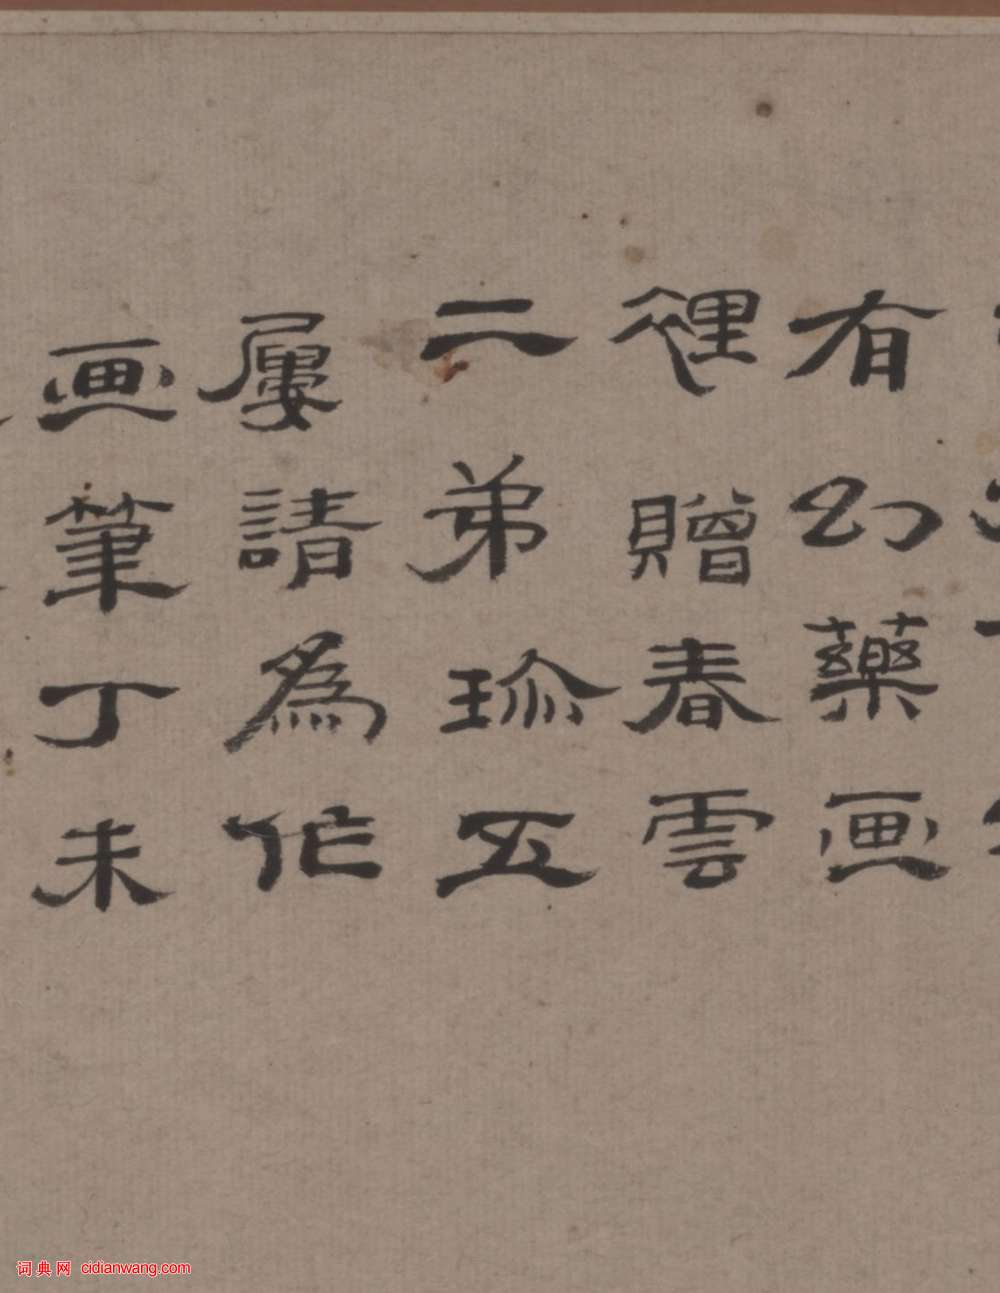 有幻藥画
裡贈春雲
二弟珎五
屢請為作
画筆丁未
词典网 cidianwang.com